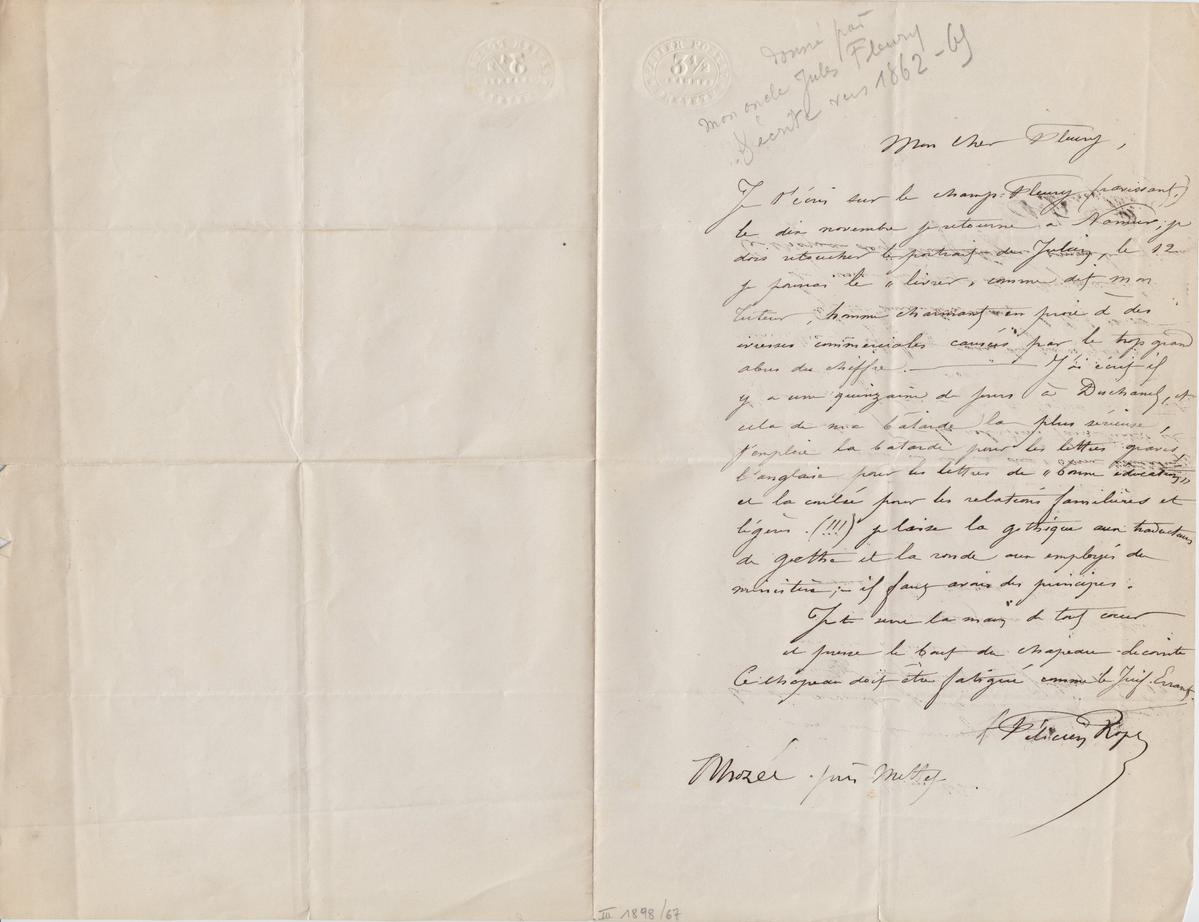 donné par
mon oncle Jules Fleury
Décrite vers 1862-65
Mon cher Fleury,
Je t'écris sur le champ-Fleury (ravissant.)
le dix novembre je retourne à Namur, je
dois retoucher le portrait de Julien, le 12
je pourrai le "livrer" comme dit mon
tuteur, homme charmant en proie à des
ivresses commerciales causées par le trop grand
abus du chiffre. — J'ai écrit il
y a une quinzaine de jours à Deschanel, et
cela de ma bâtarde la plus sérieuse,
j'emploie la batarde pour les lettres graves,
l'anglaise pour les lettres de "bonne éducation"
et la coulée pour les relations familières et
légères. (!!!) je laisse la gothique aux traducteurs
de goethe et la ronde aux employés du
ministère; – il faut avoir des principes.
Je te serre la main de tout coeur
et presse le bout du chapeau
Ce chapeau doit être fatigué comme le Juif-Errant.
Félicien Rops
Thozée. près Mettet.
III 1898/67